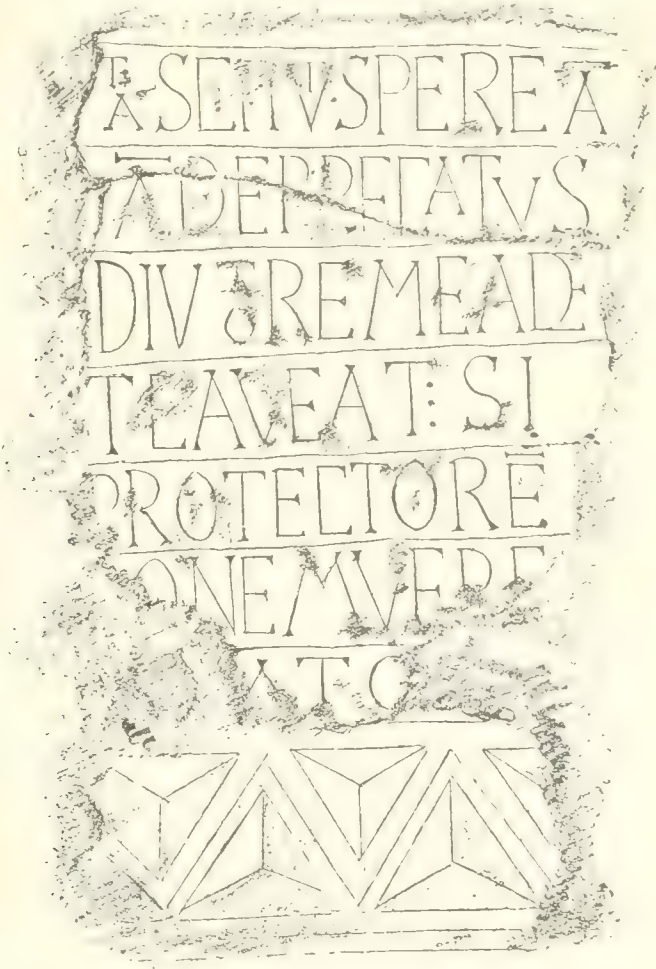 A SETIV·SPERE Ā
ĀDEPRETATVS
DIV REMEADE
TEAVEAT⋮ SI
PROTECTORĒ
ONEMVERE
ATO